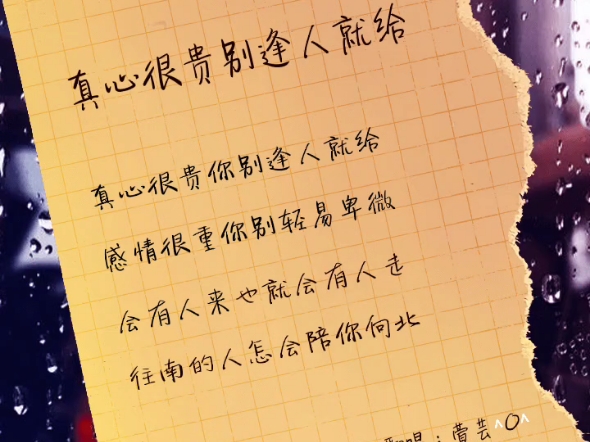 真心很贵别逢人就给
真心很贵你别逢人就给
感情很重你别轻易卑微
会有人来也就会有人走
往南的人怎会陪你向北
唱:曹芸^O^